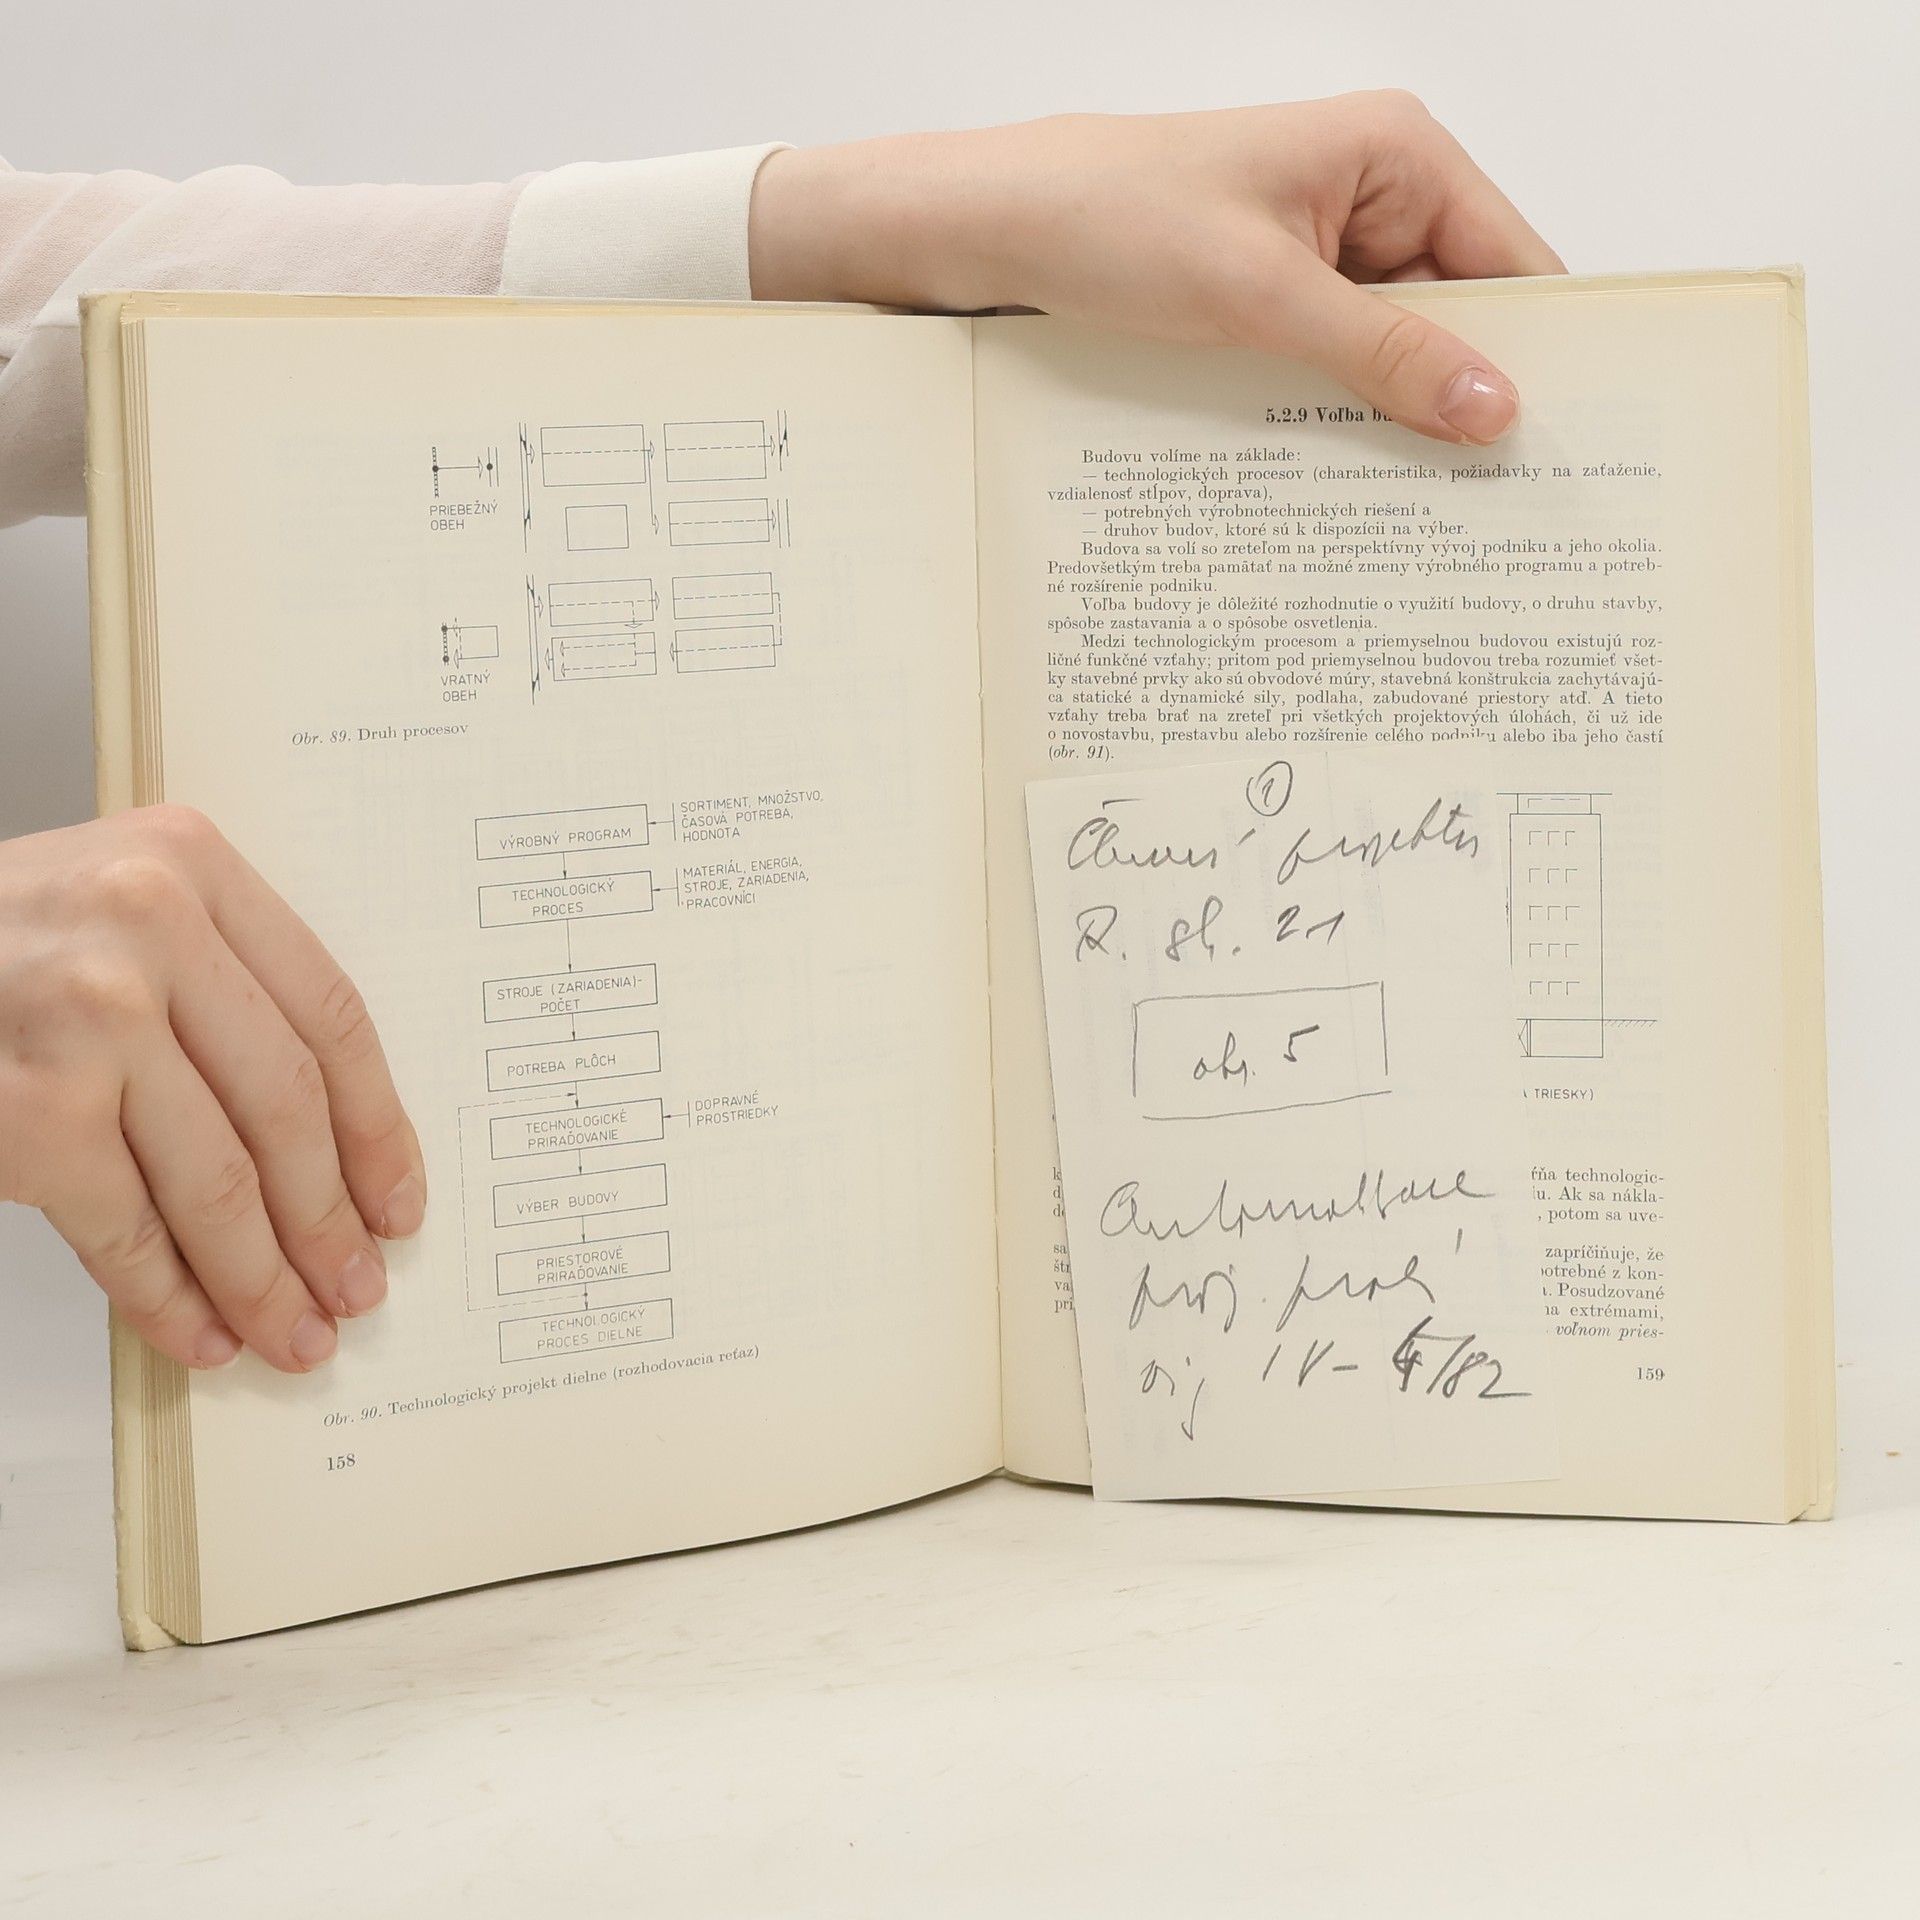 PRIEBEŽNÝ
OBEH
VRATNÝ
OBEH
Obr. 89. Druh procesov
VÝROBNÝ PROGRAM
SORTIMENT, MNOŽSTVO,
ČASOVÁ POTREBA,
HODNOTA
TECHNOLOGICKÝ
PROCES
MATERIÁL, ENERGIA,
STROJE, ZARIADENIA,
PRACOVNÍCI
STROJE (ZARIADENIA)-
POČET
POTREBA PLÔCH
TECHNOLOGICKÉ
PRIRAĎOVANIE
DOPRAVNÉ
PROSTRIEDKY
VÝBER BUDOVY
PRIESTOROVÉ
PRIRAĎOVANIE
TECHNOLOGICKÝ
PROCES DIELNE
Obr. 90. Technologický projekt dielne (rozhodovacia reťaz)
158
5.2.9 Voľba
Budovu volíme na základe:
— technologických procesov (charakteristika, požiadavky na zaťaženie,
vzdialenosť stĺpov, doprava),
— potrebných výrobnotechnických riešení a
— druhov budov, ktoré sú k dispozícii na výber.
Budova sa volí so zreteľom na perspektívny vývoj podniku a jeho okolia.
Predovšetkým treba pamätať na možné zmeny výrobného programu a potreb-
né rozšírenie podniku.
Voľba budovy je dôležité rozhodnutie o využití budovy, o druhu stavby,
spôsobe zastavania a o spôsobe osvetlenia.
Medzi technologickým procesom a priemyselnou budovou existujú roz-
ličné funkčné vzťahy; pritom pod priemyselnou budovou treba rozumieť všet-
ky stavebné prvky ako sú obvodové múry, stavebná konštrukcia zachytávajú-
ca statické a dynamické sily, podlaha, zabudované priestory atď. A tieto
vzťahy treba brať na zreteľ pri všetkých projektových úlohách, či už ide
o novostavbu, prestavbu alebo rozšírenie celého podniku alebo iba jeho častí
(obr. 91).
1
projektu
R. 21
obr. 5
proj.
IV- /82
TRIESKY)
technologic-
u. Ak sa nákla-
, potom sa uve-
zapríčiňuje, že
potrebné z kon-
Posudzované
na extrémami,
voľnom pries-
159